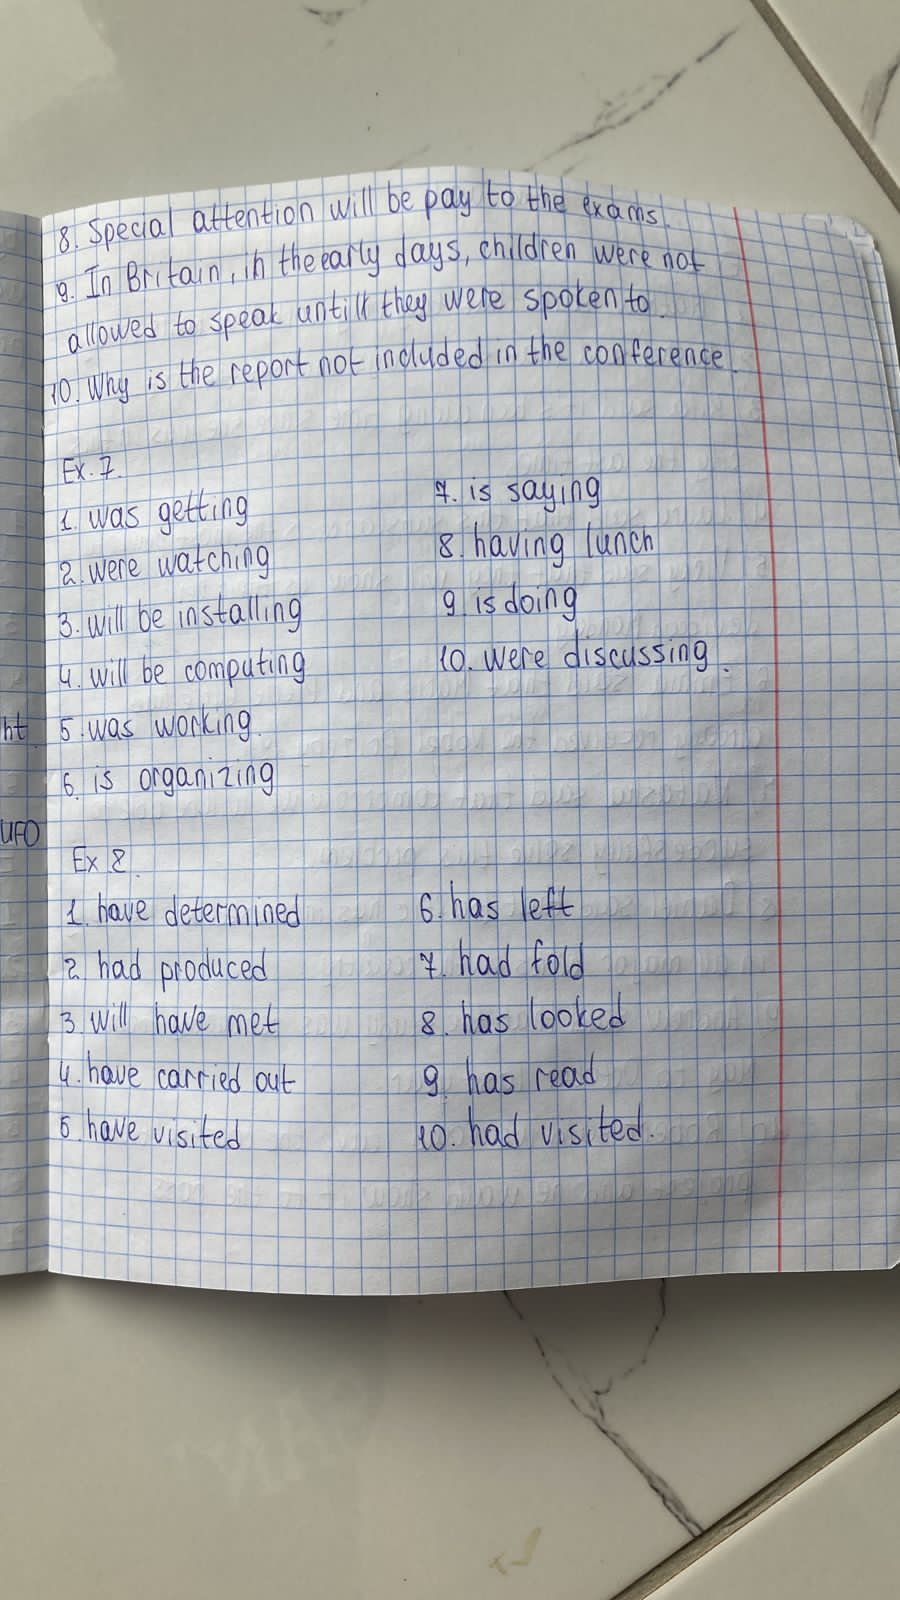 8. Special attention will be pay to the exams.
9. In Britain, in the early days, children were not
allowed to speak untill they were spoken to.
10. Why is the report not included in the conference.
Ex. 7.
1. was getting
2. were watching
3. will be installing
4. will be computing
5. was working.
6. is organizing
7. is saying
8. having lunch
9. is doing
10. were discussing.
Ex 8.
1. have determined
2. had produced
3. will have met
4. have carried out
5. have visited
6. has left
7. had fold
8. has looked
9. has read
10. had visited.
ht
UFO